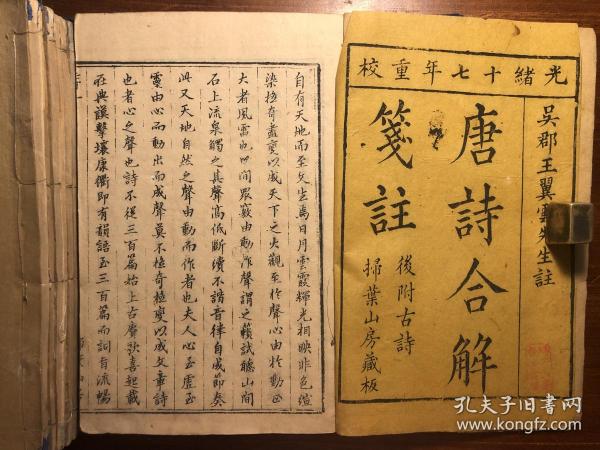 光緒十七年重校
吳郡王翼雲先生註
唐詩合解
箋註
後附古詩
掃葉山房藏板
自有天地而至文生焉日月雲霞輝光相映非色繪
染极奇盡變以成天下之大觀至於聲心由於動
大者風雷也山間眾竅由動作聲謂之籟試聽山間
石上流泉觸之其聲高低斷續不諧音律自成節奏
此又天地自然之聲由動而作者也夫人心至虛至
靈由心而動出而成聲莫不極奇極變以成文章詩
也者心之聲也詩不從三百篇始上古賡歌喜起載
在典謨擊壤康衢即有韻語至三百篇而詞旨流暢
孔夫子旧书网
www.kongfz.com